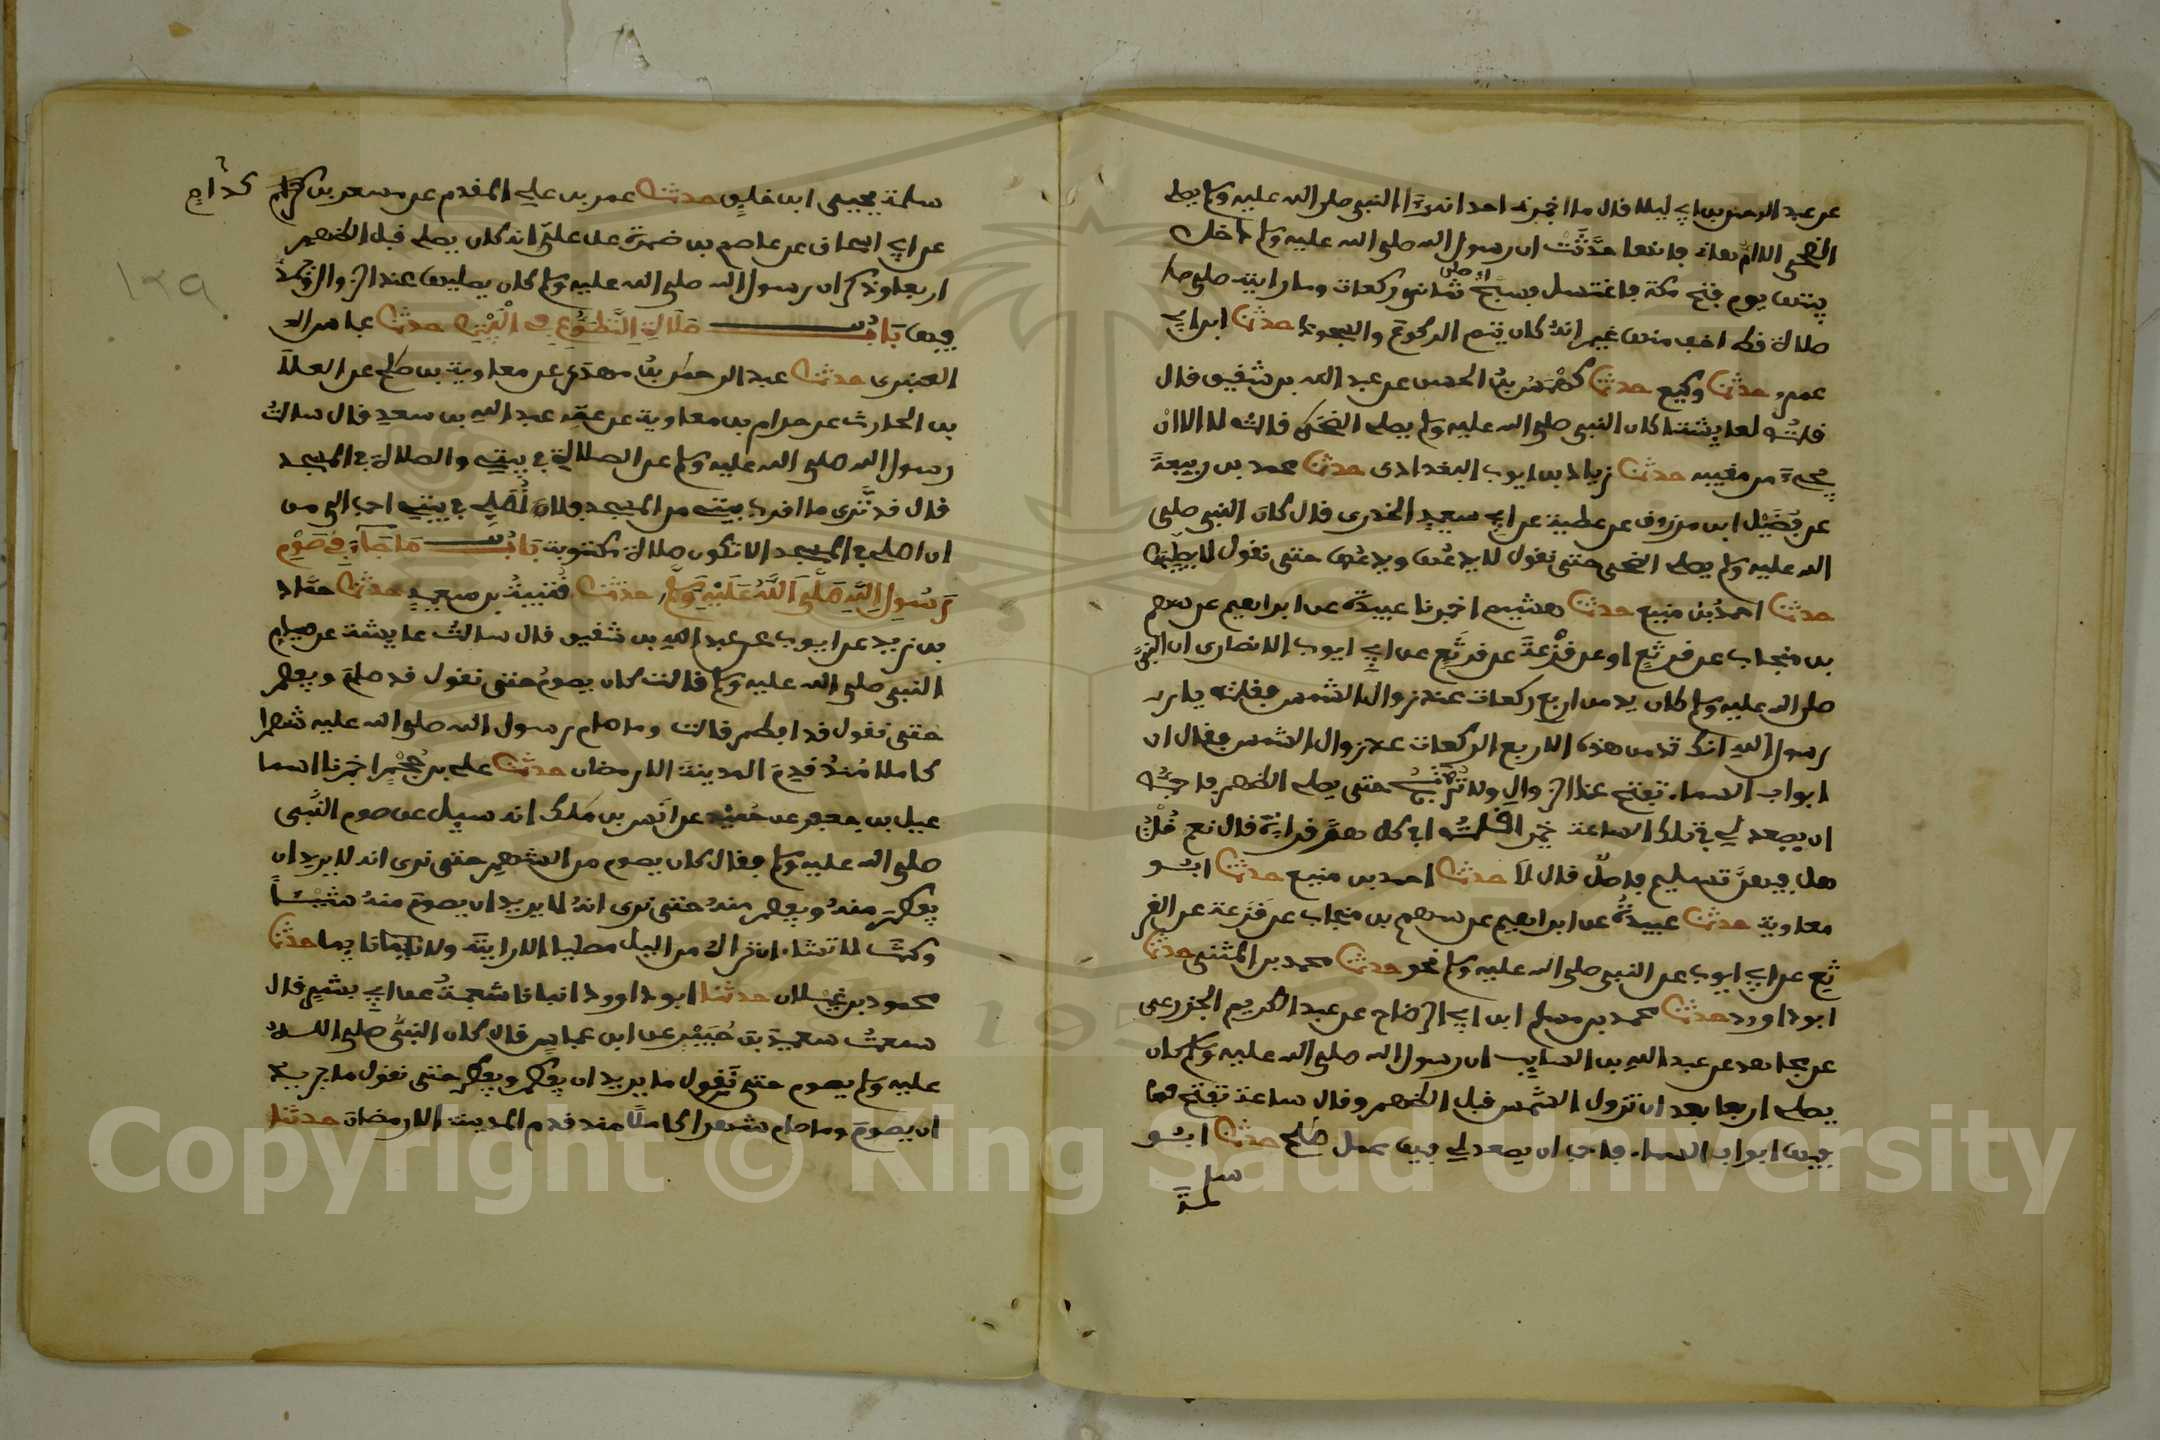 عن عبد الرحمن بن ابي ليلا قال ما اخبرنه احد انه رءا النبي صلى الله عليه وسلم يصلي
الضحى الا ام هانئ فانها حدثت ان رسول الله صلى الله عليه وسلم دخل
بيتها يوم فتح مكة فاغتسل فسبح ثماني ركعات وما رايته صلى صلى
صلاة قط اخف منها غير انه كان يتم الركوع والسجود حدثنا ابن ابي
عمر، حدثنا وكيع حدثنا كهمس بن الحسن عن عبد الله بن شقيق قال
قلت لعايشة اكان النبي صلى الله عليه وسلم يصلي الضحى قالت لا الا ان
يجيء من مغيبه حدثنا زياد بن ايوب البغدادي حدثنا محمد بن ربيعة
عن فضيل ابن مرزوق عن عطية عن ابي سعيد الخدري قال كان النبي صلى
الله عليه وسلم يصلي الضحى حتى نقول لا يدعها ويدعها حتى نقول لا يصليها
حدثنا احمد بن منيع حدثنا هشيم اخبرنا عبيدة عن ابراهيم عن سهم
بن منجاب عن قرثع او عن قزعة عن قرثع عن ابي ايوب الانصاري ان النبي
صلى الله عليه وسلم كان يدمن اربع ركعات عند زوال الشمس فقلت يا
رسول الله انك تدمن هذه الاربع الركعات عند زوال الشمس فقال ان
ابواب السماء تفتح عند الزوال ولا ترتج حتى يصلى الظهر فاحب
ان يصعد لي في تلك الساعة خير قلت افي كلهن قراءة قال نعم قلت
هل فيهن تسليم فاصل قال لا حدثنا احمد بن منيع حدثنا ابو
معاوية حدثنا عبيدة عن ابراهيم عن سهم بن منجاب عن قزعة عن القر
ثع عن ابي ايوب عن النبي صلى الله عليه وسلم نحوه حدثنا محمد بن المثنى حدثنا
ابو داوود حدثنا محمد بن مسلم ابن ابي الوضاح عن عبد الكريم الجزرعي
عن مجاهد عن عبد الله بن السايب ان رسول الله صلى الله عليه وسلم كان
يصلي اربعا بعد ان تزول الشمس قبل الظهر وقال ساعة تفتح
فيها ابواب السماء فاحب ان يصعد لي فيها عمل صلح حدثنا ابو
سلمة
سلمة يحيى ابن خلف حدثنا عمر بن علي المقدم عن مسعر بن كدام
عن ابي اسحاق عن عاصم بن ضمرة عن علي انه كان يصلي قبل الظهر
اربعا وذكر ان رسول الله صلى الله عليه وسلم كان يصليها عند الزوال ويمد
فيها باب صلاة التطوع في البيت حدثنا عباس ال
العنبري حدثنا عبد الرحمن بن مهدي عن معاوية بن صلح عن العلا
بن الحارث عن حرام بن معاوية عن عمه عبد الله بن سعد قال سالت
رسول الله صلى الله عليه وسلم عن الصلاة في بيتي والصلاة في المسجد
قال قد ترى ما اقرب بيتي من المسجد فلان اصلي في بيتي احب الي من
ان اصلي في المسجد الا تكون صلاة مكتوبة باب ما جاء في صوم
رسول الله صلى الله عليه وسلم حدثنا قتيبة بن سعيد حدثنا حماد
بن زيد عن ايوب عن عبد الله بن شقيق قال سالت عايشة عن صيام
النبي صلى الله عليه وسلم قالت كان يصوم حتى نقول قد صام ويفطر
حتى نقول قد افطر قالت وما صام رسول الله صلى الله عليه شهرا
كاملا منذ قدم المدينة الا رمضان حدثنا علي بن حجر اخبرنا اسما
عيل بن جعفر عن حميد عن انس بن ملك انه سيل عن صوم النبي
صلى الله عليه وسلم فقال كان يصوم من الشهر حتى نرى انه لا يريد ان
يفطر منه ويفطر منه حتى نرى انه لا يريد ان يصوم منه شيئا
وكنت لا تشاء ان تراه من اليل مصليا الا رايته ولا نايما
محمود بن غيلان حدثنا ابو داوود انبانا شعبة عن ابي بشر قال
سمعت سعيد بن جبير عن ابن عباس قال كان النبي صلى الله
عليه وسلم يصوم حتى نقول ما يريد ان يفطر ويفطر حتى نقول ما يريد
ان يصوم وما صام شهرا كاملا منذ قدم المدينة الا رمضان حدثنا
كدام
١٣٩
Copyright © King Saud University